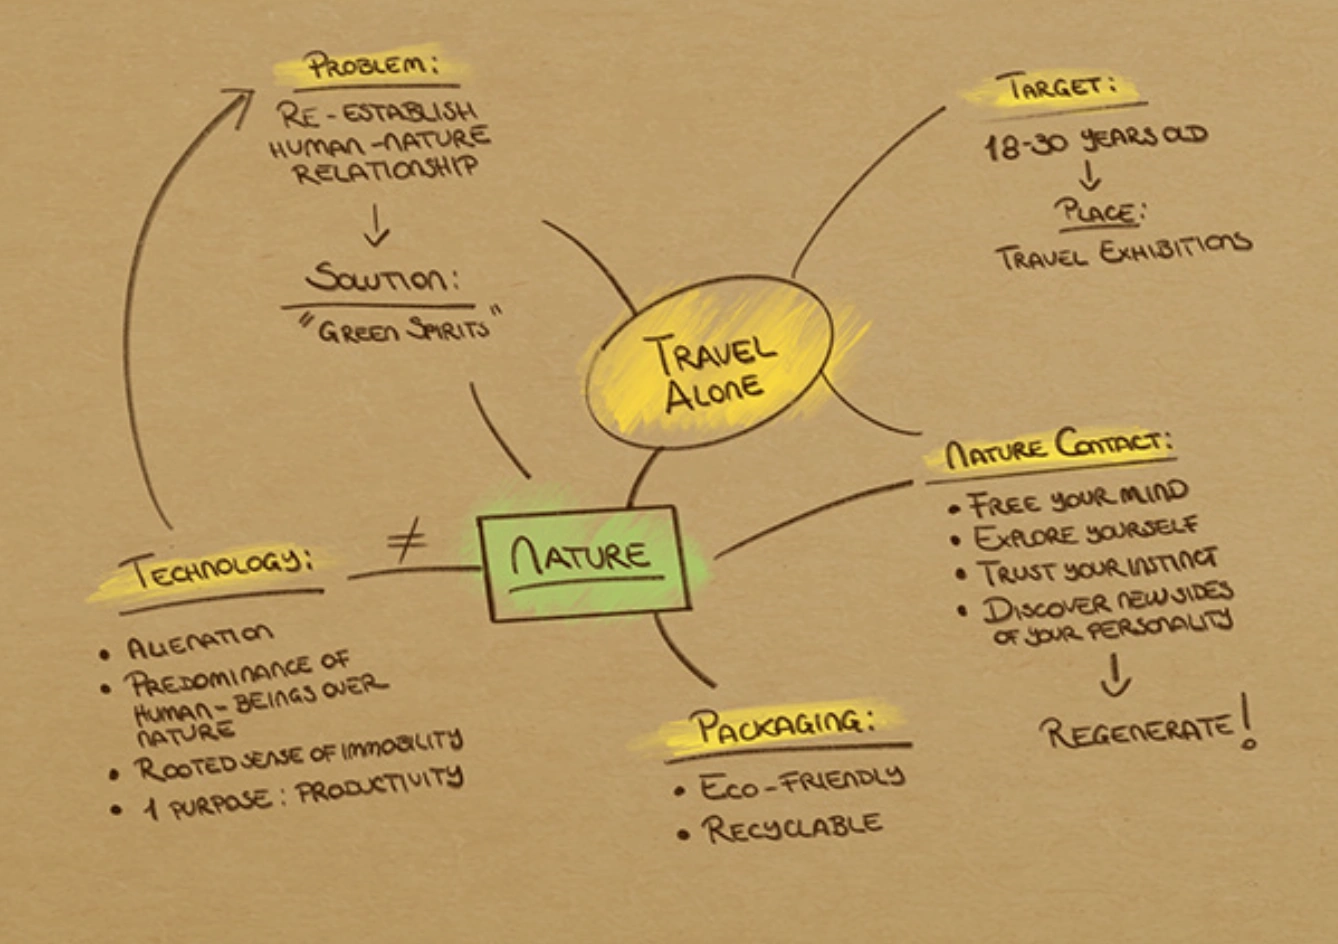 PROBLEM:
RE-ESTABLISH
HUMAN-NATURE
RELATIONSHIP
↓
SOLUTION:
"GREEN SPIRITS"
TARGET:
18-30 YEARS OLD
↓
PLACE:
TRAVEL EXHIBITIONS
TRAVEL
ALONE
NATURE CONTACT:
• FREE YOUR MIND
• EXPLORE YOURSELF
• TRUST YOUR INSTINCT
• DISCOVER NEW SIDES
OF YOUR PERSONALITY
↓
REGENERATE!
NATURE
≠
TECHNOLOGY:
• ALIENATION
• PREDOMINANCE OF
HUMAN-BEINGS OVER
NATURE
• ROOTED SENSE OF IMMOBILITY
• 1 PURPOSE: PRODUCTIVITY
PACKAGING:
• ECO-FRIENDLY
• RECYCLABLE